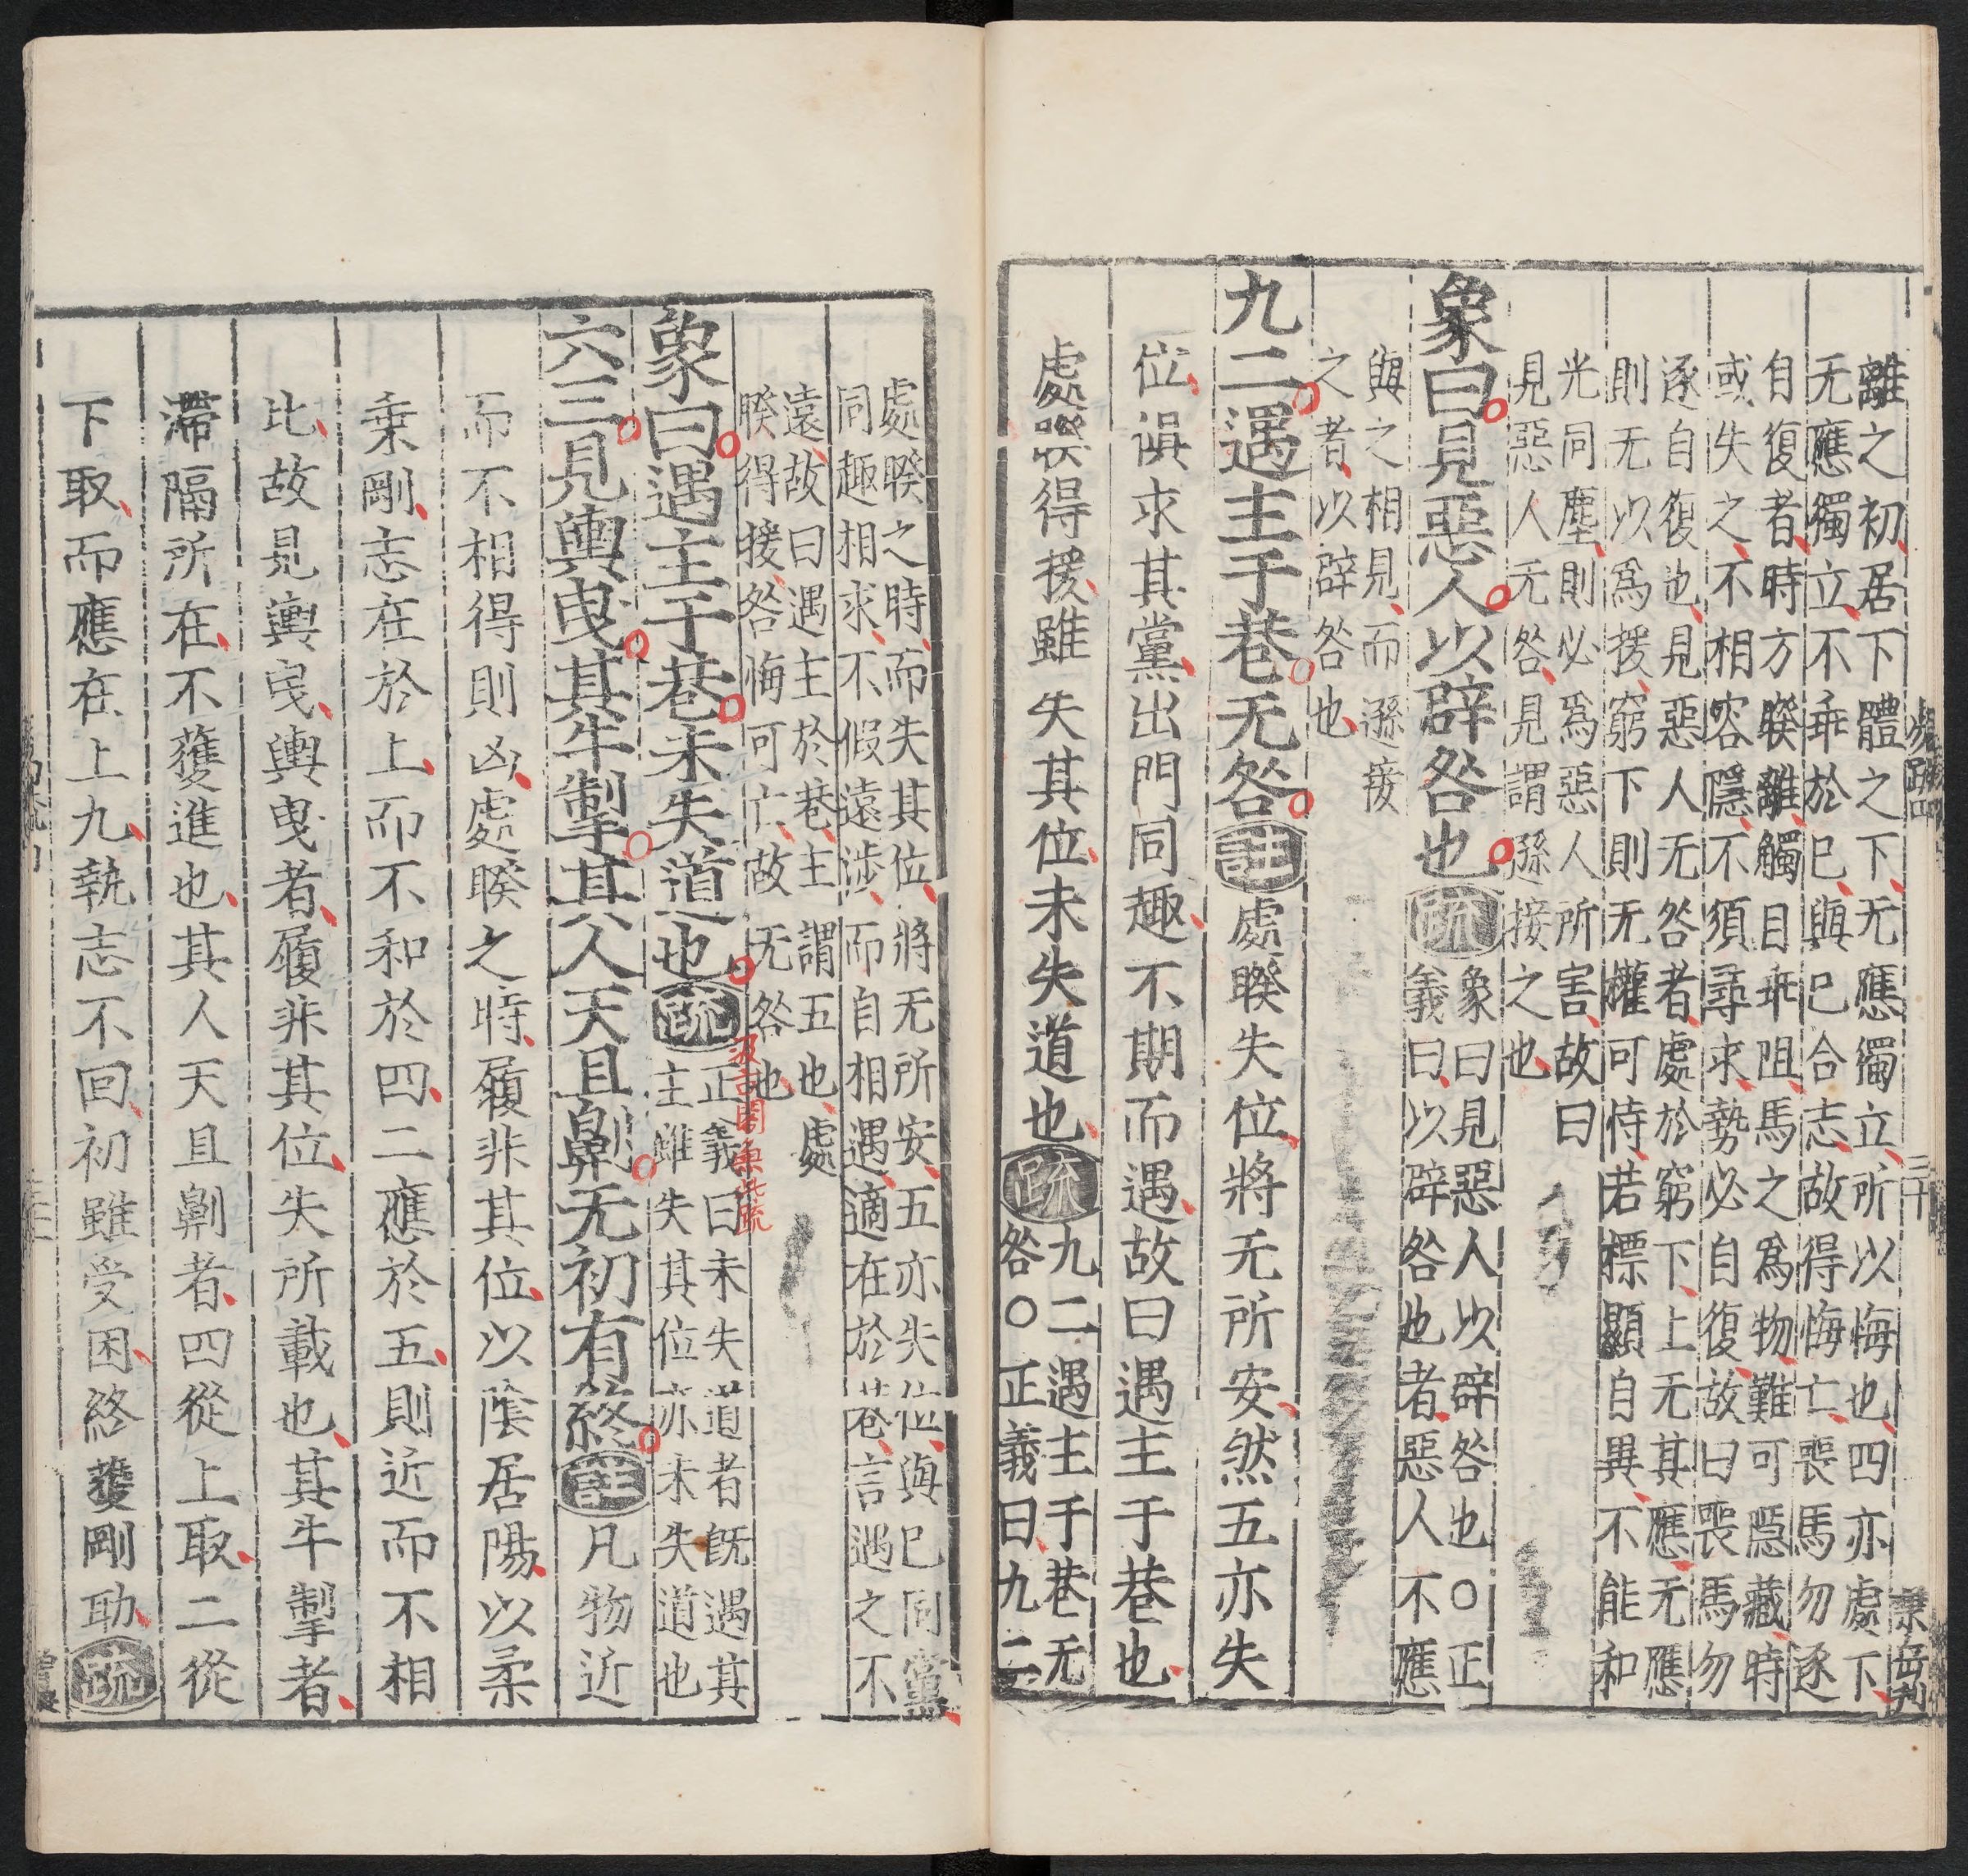 離之初居下體之下无應獨立所以悔也四亦處下
无應獨立不乖於巳與巳合志故得悔亡喪馬勿逐
自復者時方睽離觸目乖阻馬之爲物難可隱藏時
或失之不相容隱不須尋求勢必自復故曰喪馬勿
逐自復也見惡人无咎者處於窮下上无其應无應
則无以爲援窮下則无權可恃若標顯自異不能和
光同塵則必爲惡人所害故曰
見惡人无咎見謂遜接之也
象曰見惡人以辟咎也疏
象曰見惡人以辟咎也○正
義曰以辟咎也者惡人不應
與之相見而遜接
之者以辟咎也
九二遇主于巷无咎註處睽失位將无所安然五亦失
位俱求其黨出門同趣不期而遇故曰遇主于巷也
處睽得援雖失其位未失道也疏
九二遇主于巷无
咎○正義曰九二
處睽之時而失其位將无所安五亦失位與巳同黨
同趣相求不假遠涉而自相遇適在於巷言遇之不
遠故曰遇主於巷主謂五也處
睽得接咎悔可亡故无咎也
象曰遇主于巷未失道也疏
正義曰未失道者旣遇其
主雖失其位亦未失道也
六三見輿曳其牛掣其人天且劓无初有終註凡物近
而不相得則凶處睽之時履非其位以陰居陽以柔
乗剛志在於上而不和於四二應於五則近而不相
比故見輿曳輿曳者履非其位失所載也其牛掣者
滯隔所在不獲進也其人天且劓者四從上取二從
下取而應在上九執志不回初雖受困終獲剛助疏